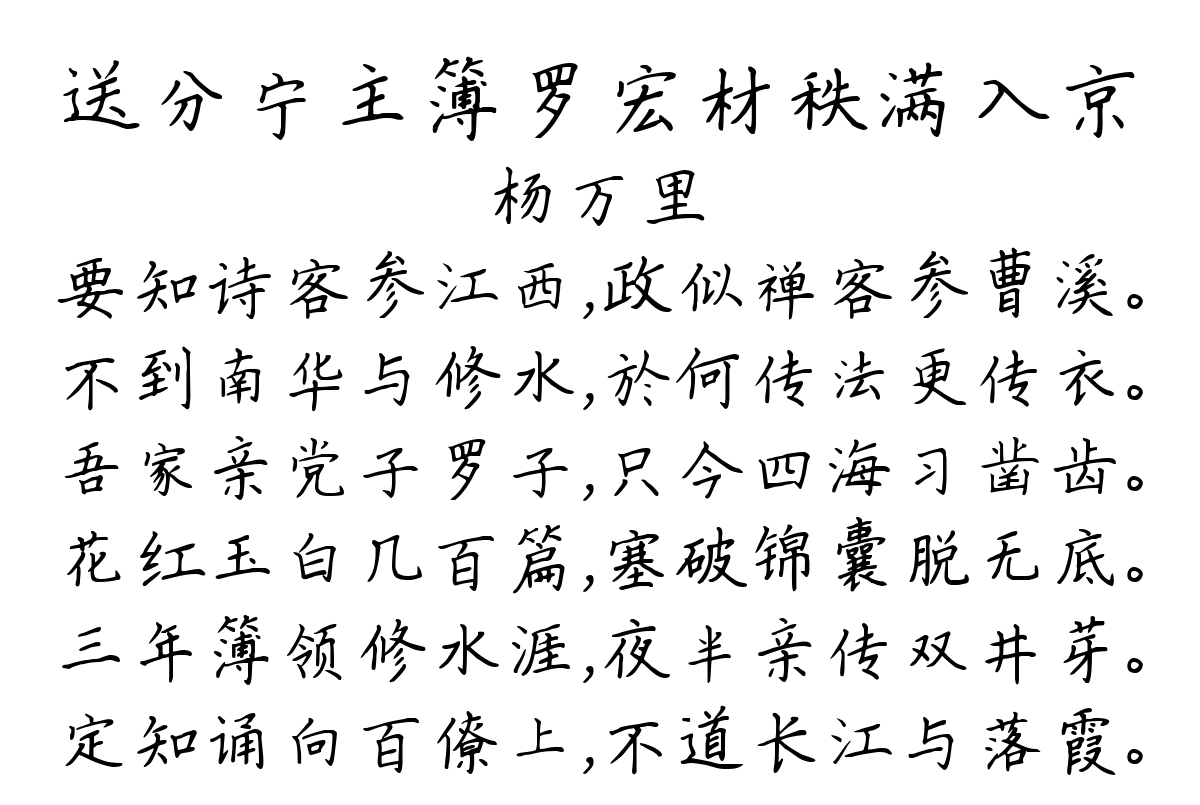 送分宁主簿罗宏材秩满入京
杨万里
要知诗客参江西,政似禅客参曹溪。
不到南华与修水,於何传法更传衣。
吾家亲党子罗子,只今四海习凿齿。
花红玉白几百篇,塞破锦囊脱无底。
三年簿领修水涯,夜半亲传双井芽。
定知诵向百僚上,不道长江与落霞。